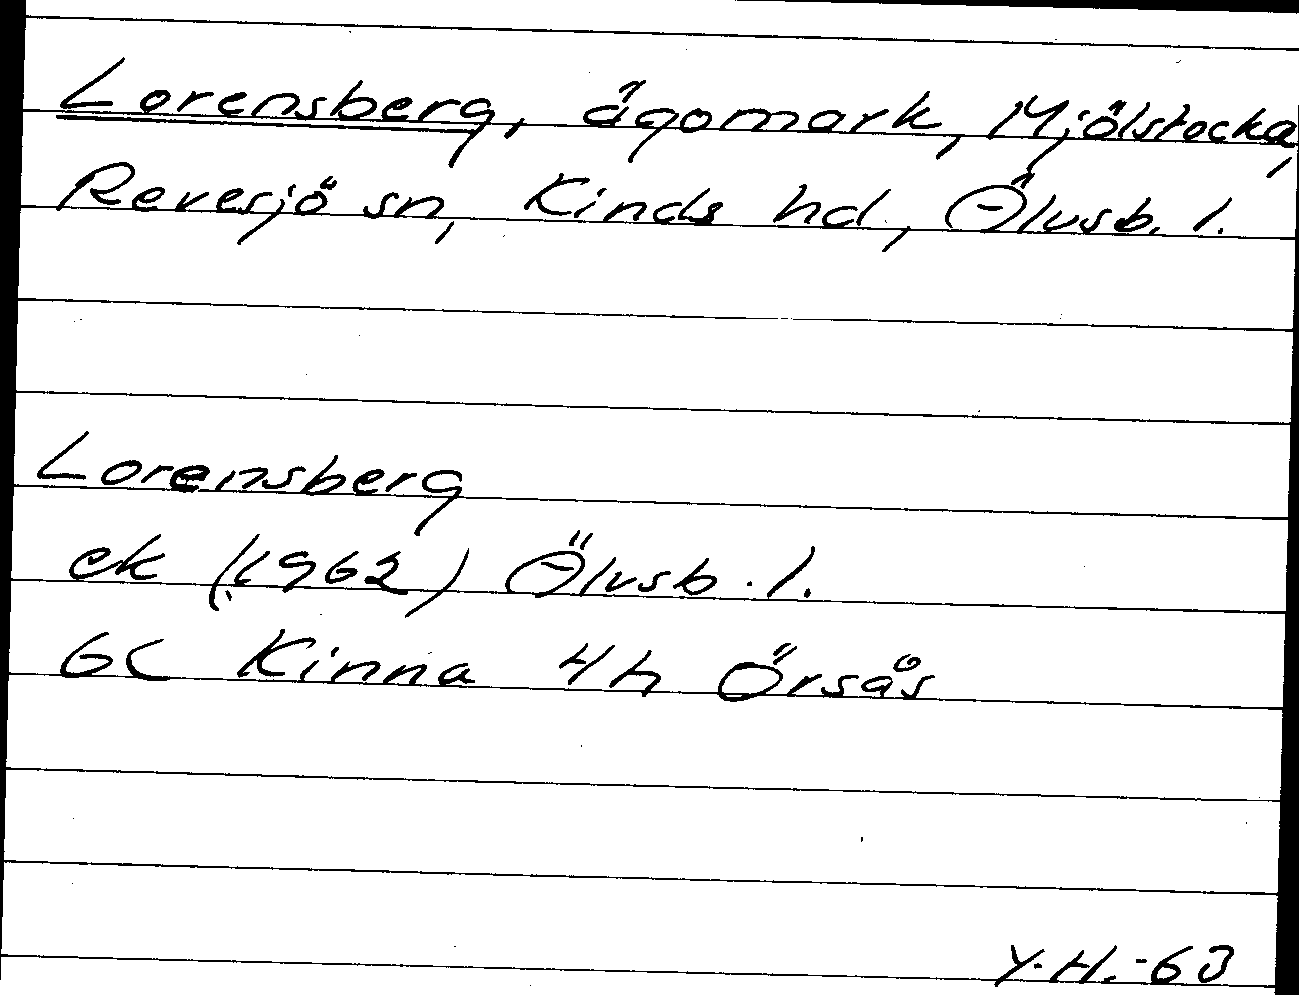 Lorensberg, ägomark, Mjölstocka,
Revesjö sn, Kinds hd, Älvsb. l.
Lorensberg
ek (1962) Älvsb. l.
6C Kinna 4h Örsås
Y.H.-63